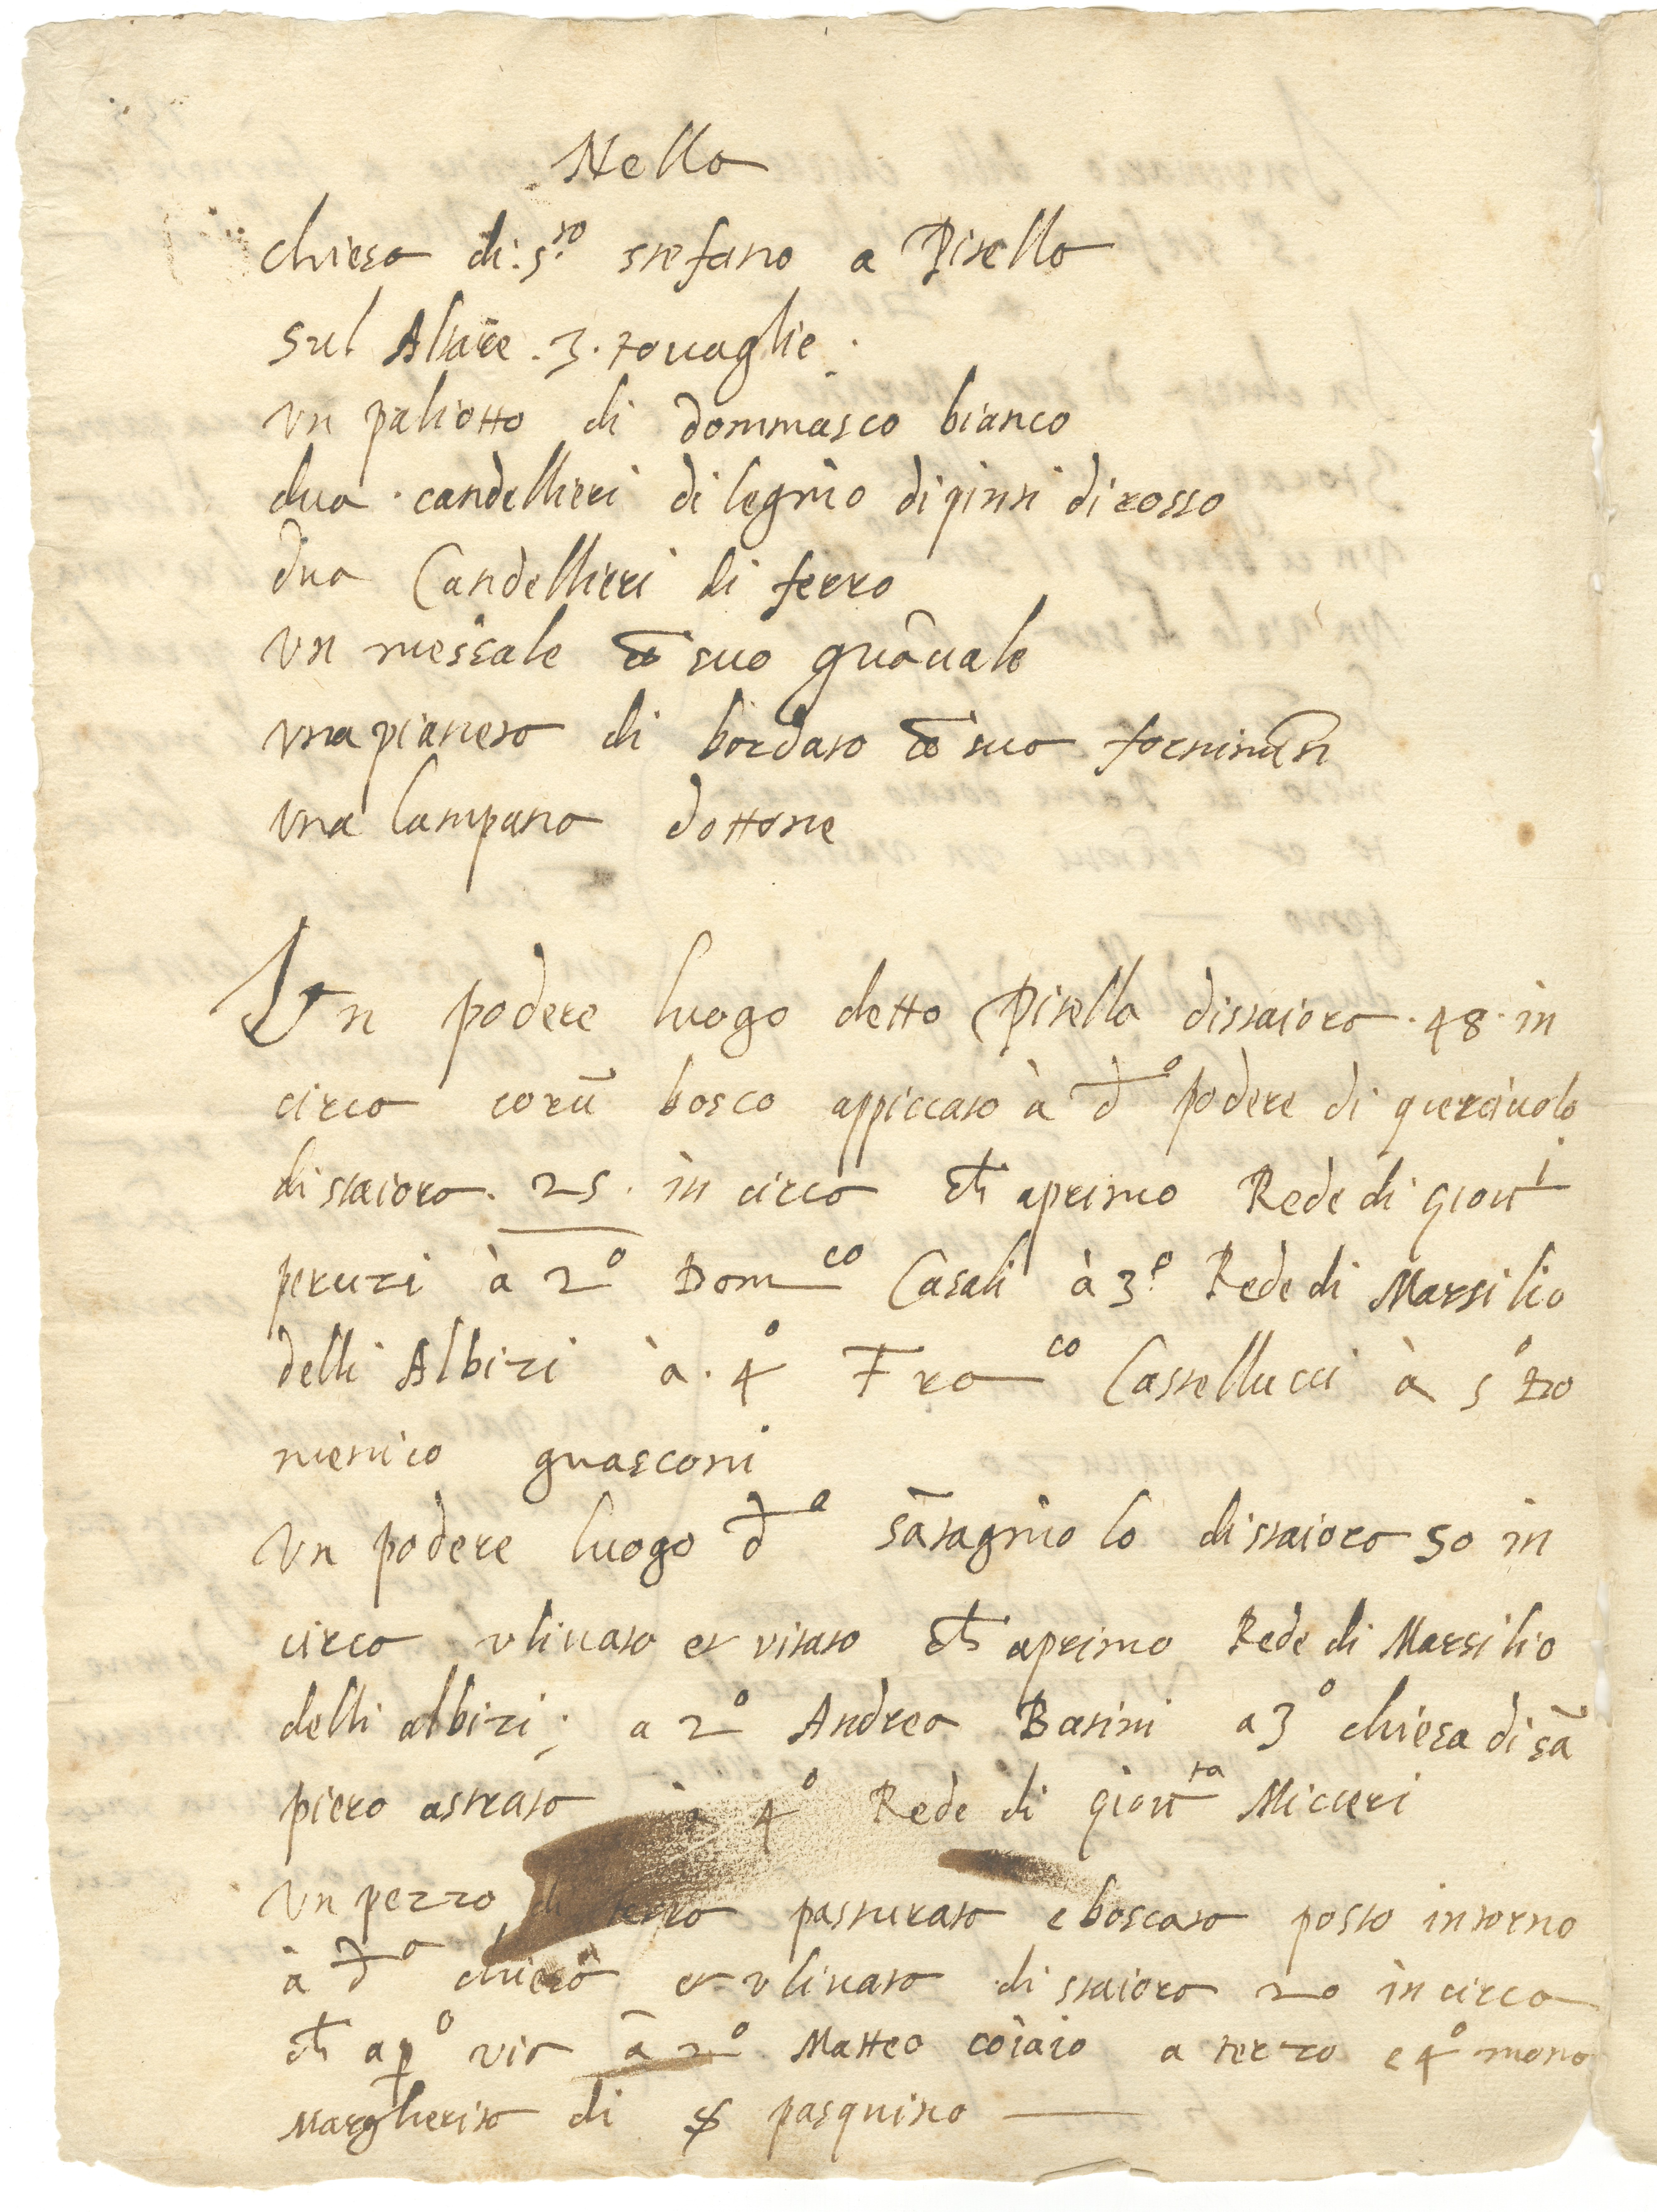 Nella
chiesa di S.to stefano a Pitella
Sul Altare . 3 . touaglie .
vn paliotto di dommasco bianco
dua . candellieri di legnio dipinti di rosso
dua Candellieri di ferro
vn messale cō suo guāciale
vna pianeta di bordato cō suo fornimēti
vna lampana dottone
Vn podere luogo detto Pitella distaiora . 48 . in
circa con ū bosco appiccato à d.o podere di querciuolo
di staiora . 25 . in circa ch aprimo Rede di Giou.i
peruzi à 2o Dom.co Casali à 3o Rede di Marsilio
delli Albizi à . 4o Fra.co Castellucci à 5o Do
menico guasconi
vn podere luogo d.o sātagniolo distaiora 50 in
circa vliuato et vitato ch aprimo Rede di Marsilio
delli albizi ; a 2o Andrea Barini a 3o chiesa di sā
piero astrato à 4o Rede di giou.ta Micceri
vn pezzo di terra pasturato e boscato posto intorno
à d.a chiesa et vliuato di staiora 20 in circa
ch a p.o via à 2o Matteo coiaio a terzo e 4o mona
Margherita di S pasquino